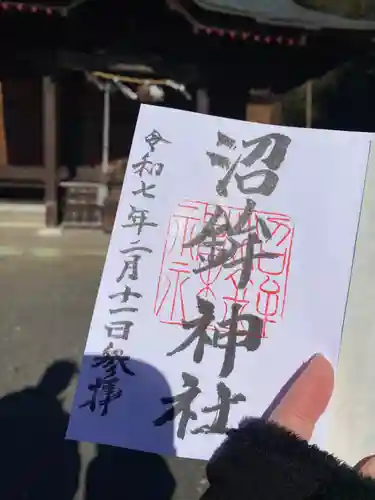 沼鉾神社
令和七年二月十一日参拝